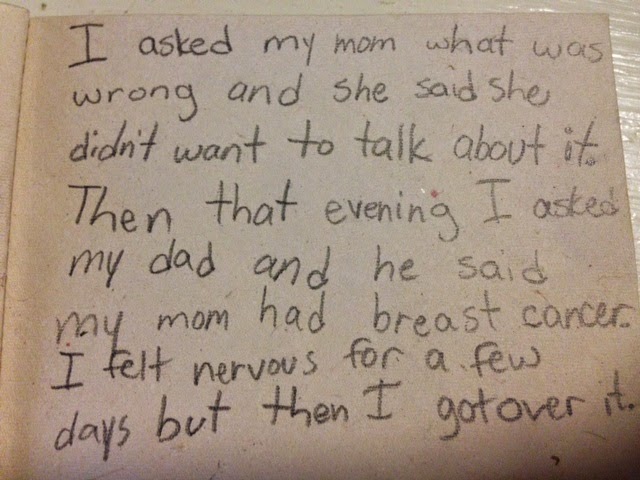 I asked my mom what was
wrong and she said she
didn't want to talk about it.
Then that evening I asked
my dad and he said
my mom had breast cancer.
I felt nervous for a few
days but then I got over it.